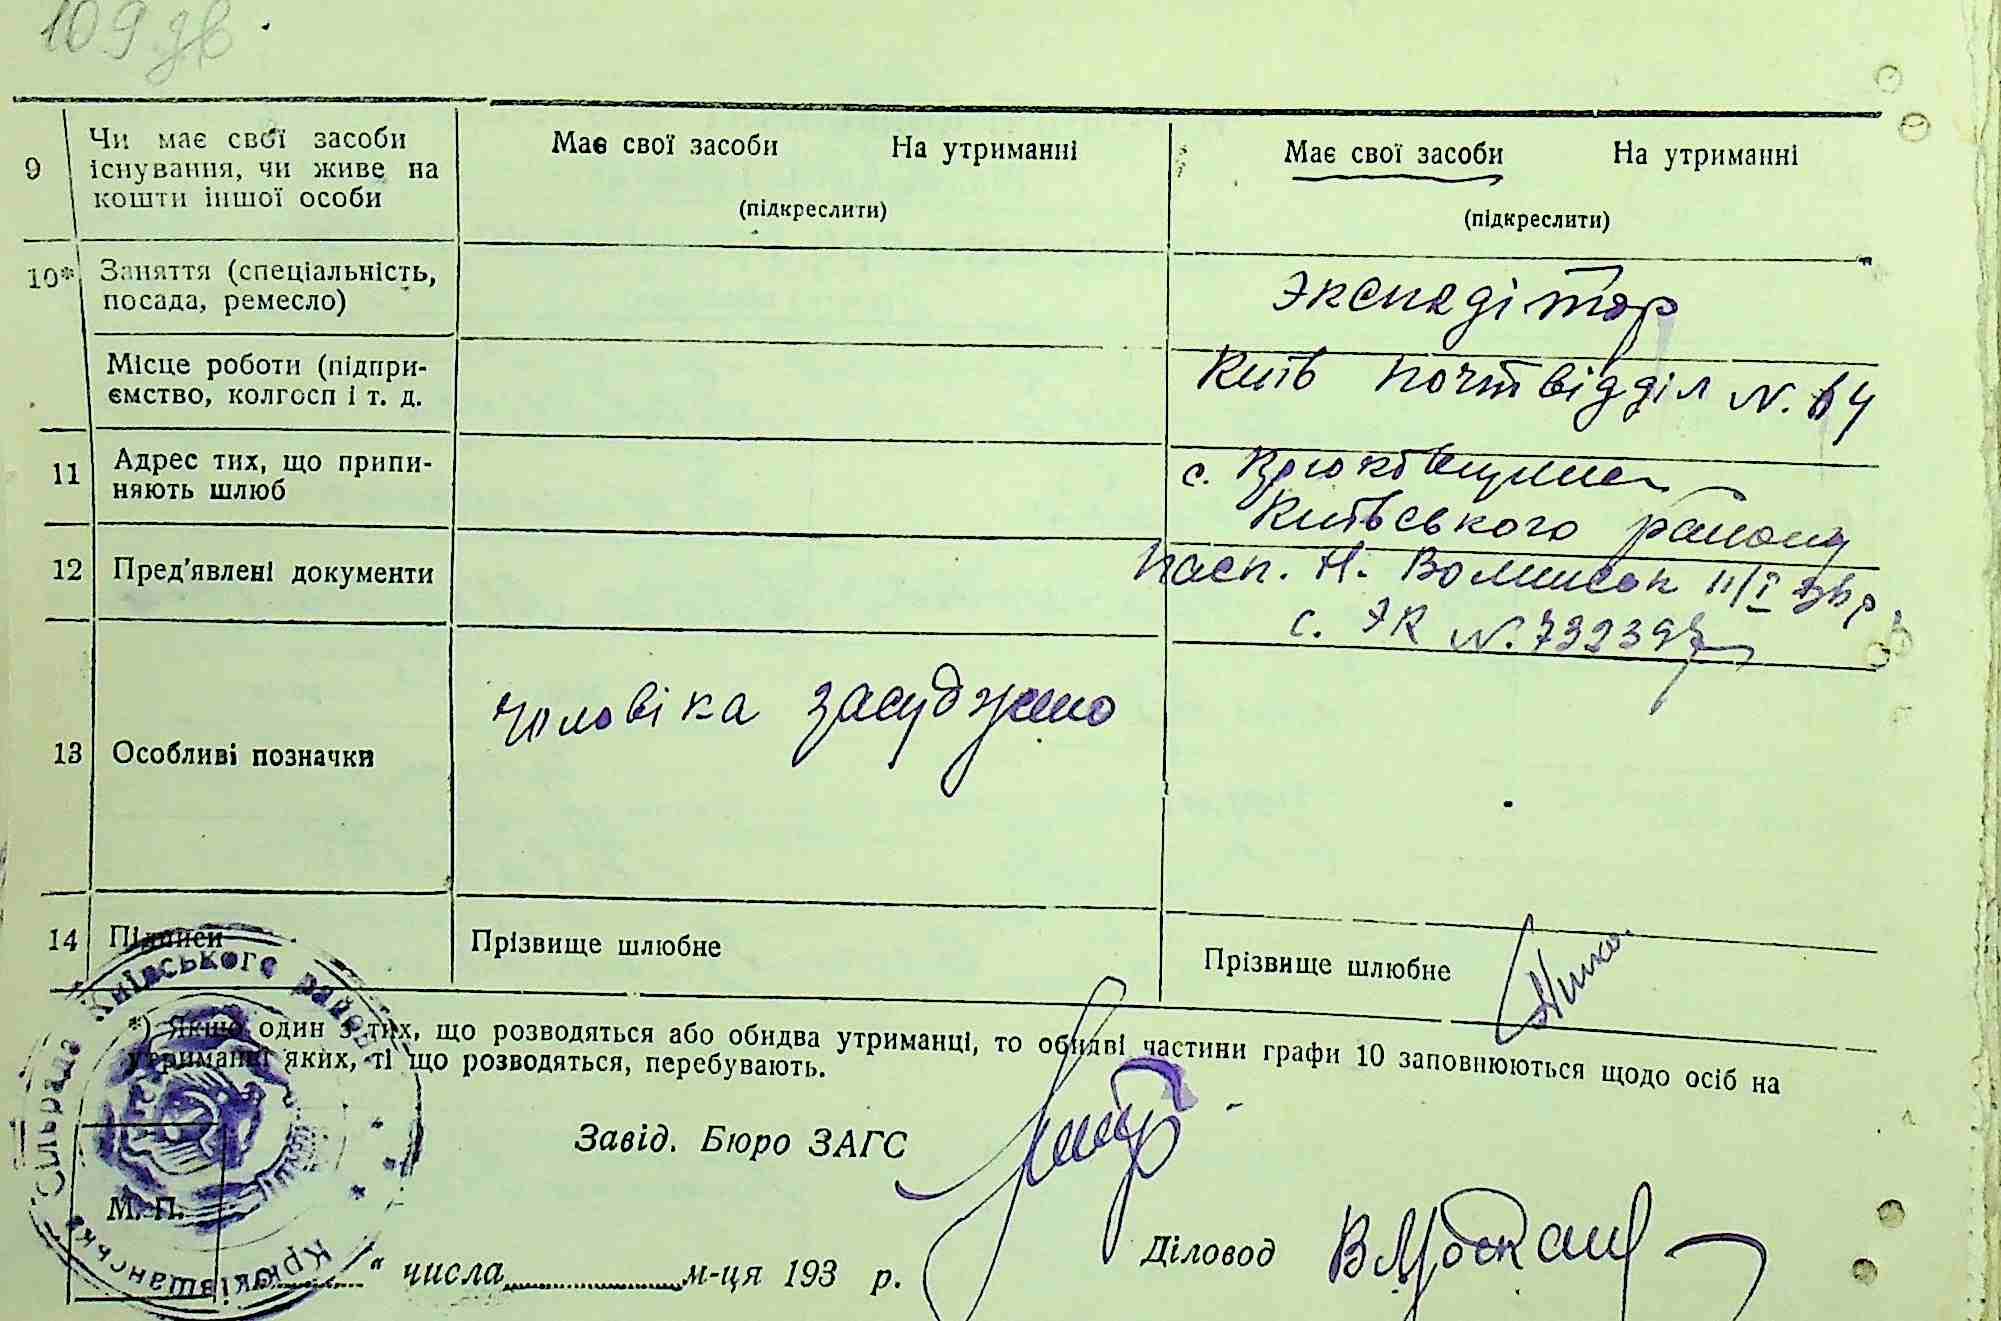 109 зв.
9 Чи має свої засоби існування, чи живе на кошти іншої особи
Має свої засоби На утриманні
(підкреслити)
Має свої засоби На утриманні
(підкреслити)
10* Заняття (спеціальність, посада, ремесло)
Экспедітор
Місце роботи (підприємство, колгосп і т. д.
Київ почтвідділ N. 64
11 Адрес тих, що припиняють шлюб
с. Крюковщина
Київського району
12 Пред'явлені документи
пасп. Н. II/I
с. ЭК N. 732397
13 Особливі позначки
Чоловіка засуджено
14 Підписи
Прізвище шлюбне
Прізвище шлюбне
*) Якщо один з тих, що розводяться або обидва утриманці, то обидві частини графи 10 заповнюються щодо осіб на
утриманні яких, ті що розводяться, перебувають.
Завід. Бюро ЗАГС
М. П.
Діловод
" числа м-ця 193 р.
Крюківщанська Сільрада Київського району